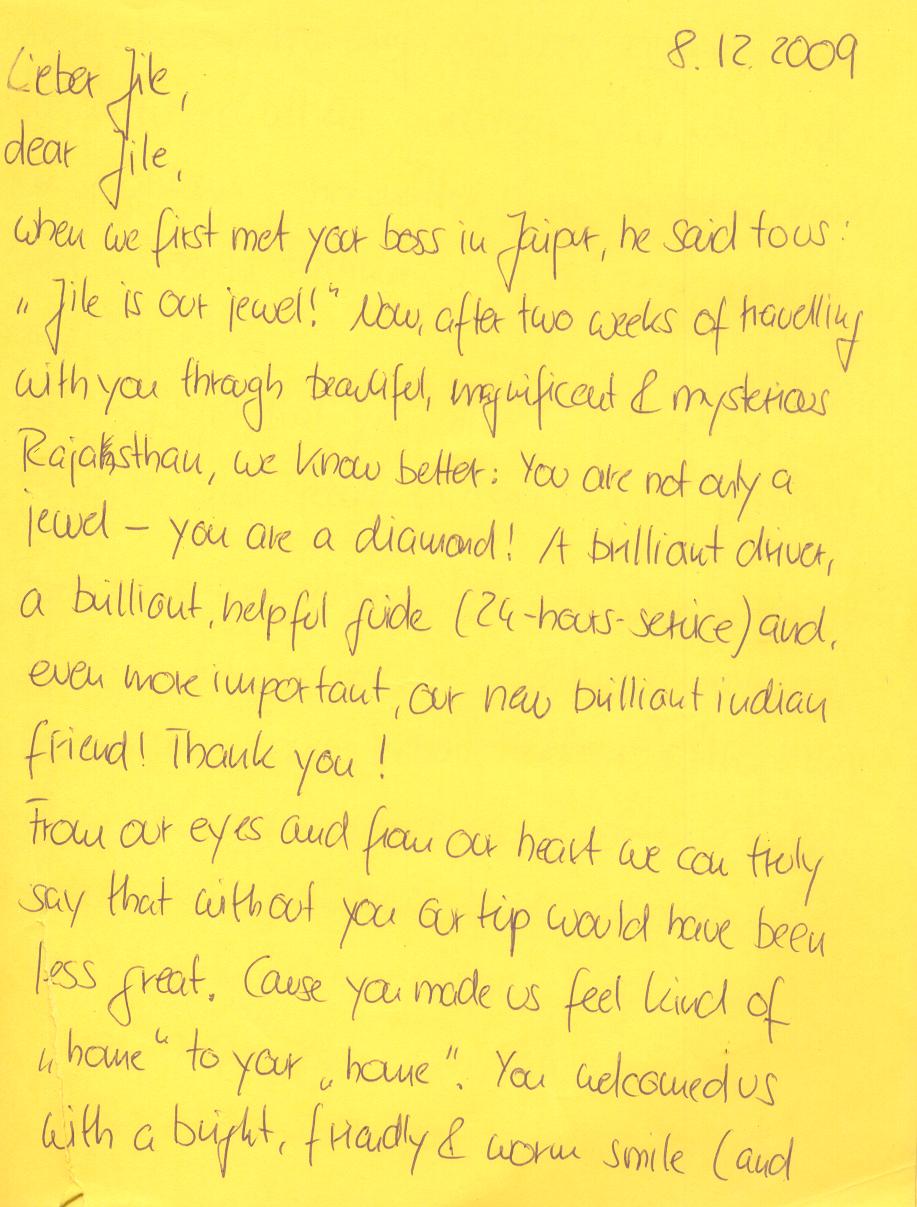 8.12.2009
Lieber Jile,
dear Jile,
when we first met your boss in Jaipur, he said to us:
„Jile is our jewel!“ Now, after two weeks of travelling
with you through beautiful, magnificent & mysterious
Rajahsthan, we know better: You are not only a
jewel – you are a diamond! A brilliant driver,
a brilliant, helpful guide (24-hours-service) and,
even more important, our new brilliant indian
friend! Thank you!
From our eyes and from our heart we can truly
say that without you our trip would have been
less great. Cause you made us feel kind of
„home“ to your „home“. You welcomed us
with a bright, friendly & warm smile (and